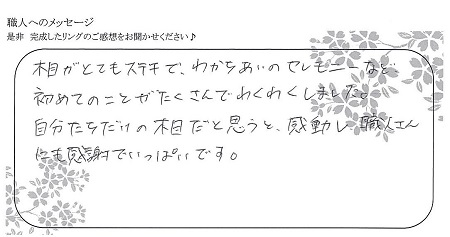 職人へのメッセージ
是非 完成したリングのご感想をお聞かせください♪
木目がとてもステキで、わかちあいのセレモニーなど、
初めてのことがたくさんでわくわくしました。
自分たちだけの木目だと思うと、感動し、職人さん
にも感謝でいっぱいです。